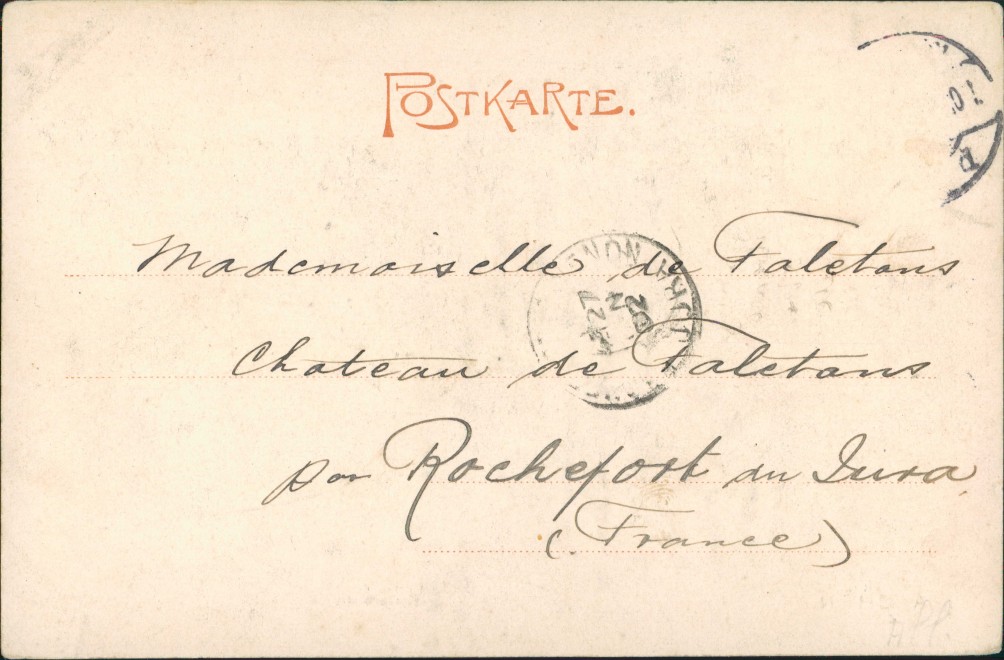 POSTKARTE.
Mademoiselle de Faletans
Chateau de Faletans
par Rochefort du Jura
(France)
27
02